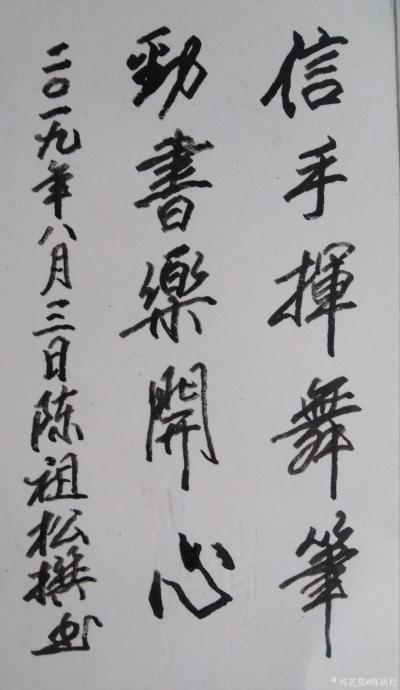 信手揮舞筆
勁書樂開心
二〇一九年八月三日陈祖松撰书
兴艺堂@陈祖松